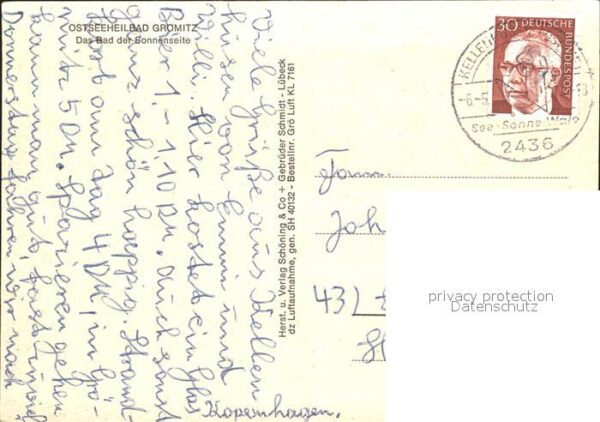 OSTSEEHEILBAD GRÖMITZ
Das Bad der Sonnenseite
Viele Grüße aus Kellen
husen von Emmi und
Willi. Hier kostet ein Glas
Bier 1,- 1,10 DM. Auch sonst
ganz schön happig. Strand-
korb am Tag 4 DM, in Grö-
mitz 5 DM. Spazieren gehen
kann man gut, fast zuviel
Donnerstag fahren wir nach
Kopenhagen.
Herst. u. Verlag Schöning & Co + Gebrüder Schmidt - Lübeck
dz Luftaufnahme, gen. SH 40132 - Bestellnr. Grö Luft KL 7161
30 DEUTSCHE
BUNDESPOST
KELLEN
-6.-5.
See-Sonne-Wald
2436
Fam.
Joh
43
privacy protection
Datenschutz